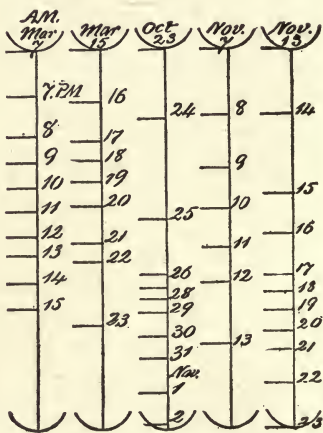 A.M.
Mar
7
7. P.M.
8
9
10
11
12
13
14
15
Mar
15
16
17
18
19
20
21
22
23
Oct
23
24
25
26
28
29
30
31
Nov.
1
2
Nov.
7
8
9
10
11
12
13
Nov.
13
14
15
16
17
18
19
20
21
22
23